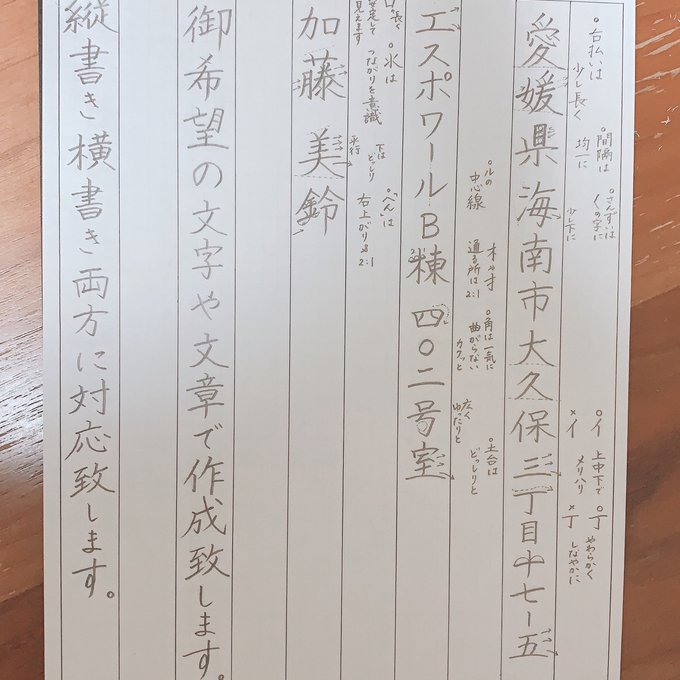 ○右払いは
少し長く
○間隔は
均一に
○さんずいは
くの字に
少し下に
○イ
×イ
上中下で
メリハリ
○丁
×丁
やわらかく
しなやかに
愛媛県海南市大久保三丁目十七ー五
○ルの
中心線
通る所は2:1
○角は一気に
曲がらない
カクッと
広く
ゆったりと
○土台は
どっしりと
エスポワールB棟四〇二号室
長く
安定して
見えます
○氺は
つながりを意識
下は
どっしり
平行
○「へん」は
右上がり
2:1
加藤美鈴
御希望の文字や文章で作成致します。
縦書き横書き両方に対応致します。